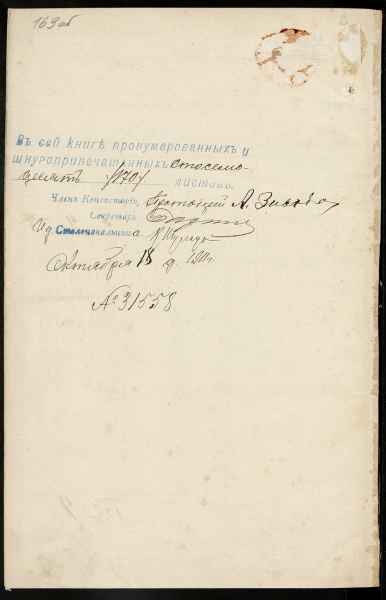 169об
Въ сей книгѣ пронумерованныхъ и
шнуроприпечатанныхъ стосемь-
десятъ /170/ листовъ.
Членъ Консисторіи, Протоіерей А.
Секретарь
И д Столоначальника
Октября 18 д. 1911 г.
№ 31558